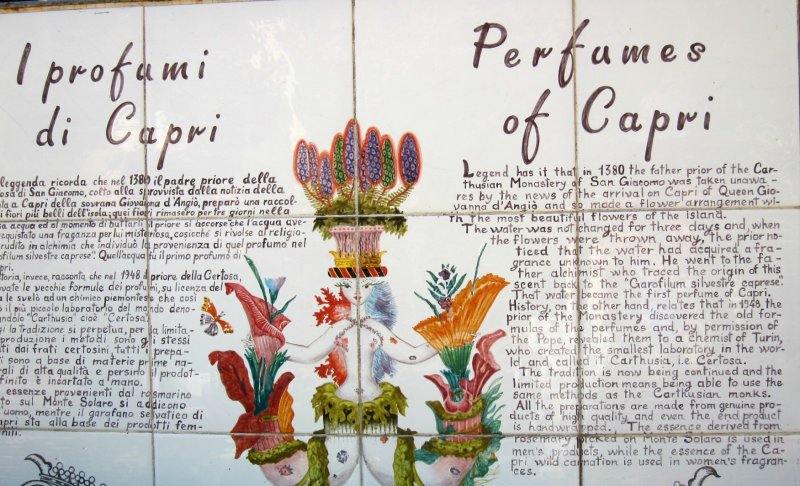 I profumi
di Capri
leggenda ricorda che nel 1380 il padre priore della
osa di San Giacomo, colto alla sprovvista dalla notizia della
a Capri della sovrana Giovanna d'Angiò, preparò una raccol
i fiori più belli dell'isola; quei fiori rimasero per tre giorni nella
sa acqua ed al momento di buttarli il priore si accorse che l'acqua ave-
acquistato una fraganza per lui misteriosa, cosicchè si rivolse al religio-
erudito in alchimia che individuò la provenienza di quel profumo nel
ofilum silvestre caprese". Quell'acqua fu il primo profumo di
pri.
toria, invece, racconta che nel 1948 il priore della Certosa,
vate le vecchie formule dei profumi, su licenza del
le svelò ad un chimico piemontese che così
ò il più piccolo laboratorio del mondo deno-
nadolo "Carthusia cioè "Certosa".
i la Tradizione si perpetua, per la limita-
produzione i metodi sono gli stessi
ti dai frati certosini, tutti i prepa-
i sono a base di materie prime na-
ali di alta qualità e persino il prodot-
finito è incartato a mano.
essenze provenienti dal rosmarino
to sul Monte Solaro si addicono
uomo, mentre il garofano selvatico di
apri sta alla base dei prodotti fem-
nili.
Perfumes
of Capri
Legend has it that in 1380 the father prior of the Car-
thusian Monastery of San Giacomo was taken unawa-
res by the news of the arrival on Capri of Queen Gio-
vanna d'Angiò and so made a flower arrangement wi-
th the most beautiful flowers of the island.
The water was not changed for three days and, when
the flowers were thrown away, the prior no-
ticed that the water had acquired a fra-
grance unknown to him. He went to the fa-
ther alchimist who traced the origin of this
scent back to the "Garofilum silvestre caprese".
That water became the first perfume of Capri.
History, on the other hand, relates that in 1948 the
prior of the Monastery discovered the old for-
mulas of the perfumes and, by permission of
the Pope, revealed them to a chemist of Turin,
who created the smallest laboratory in the wor-
ld and called it Carthusia, i.e. Certosa.
The tradition is now being continued and the
limited production means being able to use the
same methods as the Cartkusian monks.
All the preparations are made from genuine pro-
ducts of high quality and even the end product
is handwrapped. The essence derived from
rosemary picked on Monte Solaro is used in
men's products, while the essence of the Ca-
pri wild carnation is used in women's fragran-
ces.